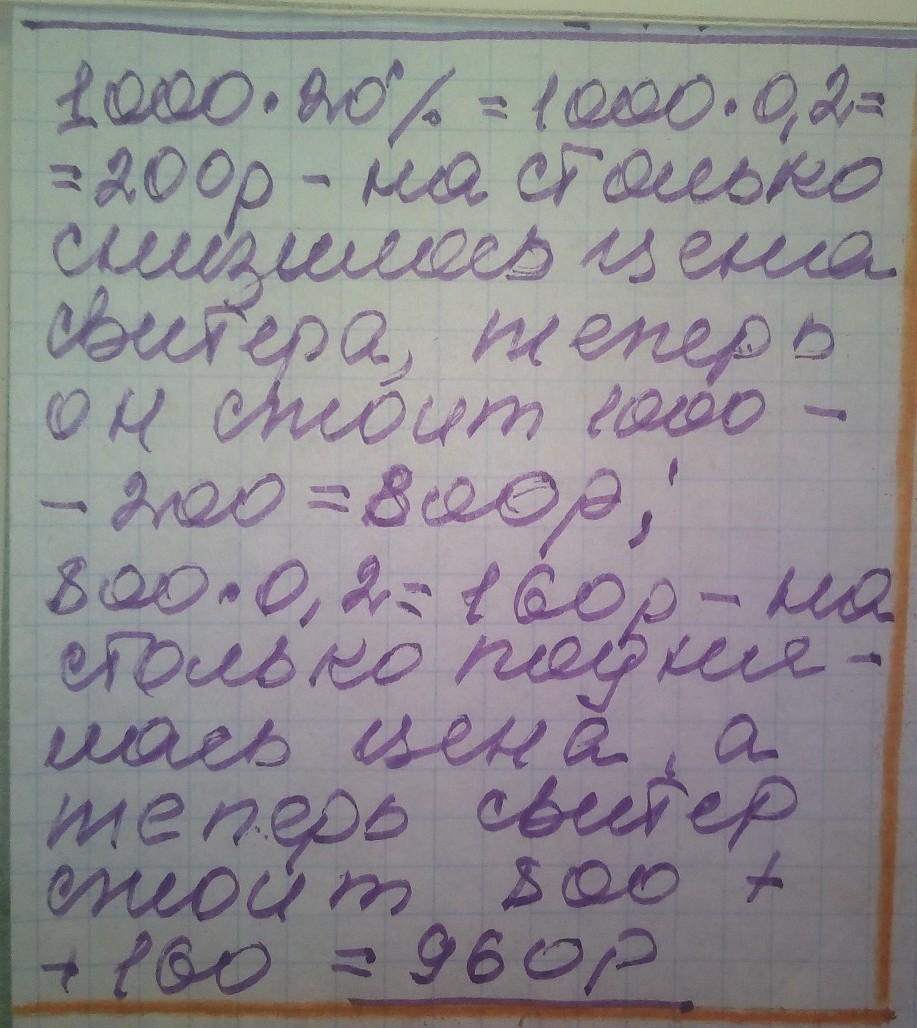 1000·20% = 1000·0,2=
=200р - на столько
снизилась цена
свитера, теперь
он стоит 1000 -
- 200 = 800р;
800·0,2= 160р - на
столько подня-
лась цена, а
теперь свитер
стоит 800 +
+ 160 = 960р